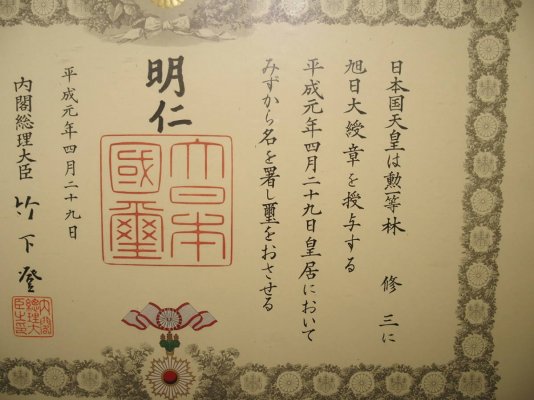 日本国天皇は勲一等林 修三に
旭日大綬章を授与する
平成元年四月二十九日皇居において
みずから名を署し璽をおさせる
明仁
大日本國璽
平成元年四月二十九日
内閣総理大臣 竹下登
内閣総理大臣之印